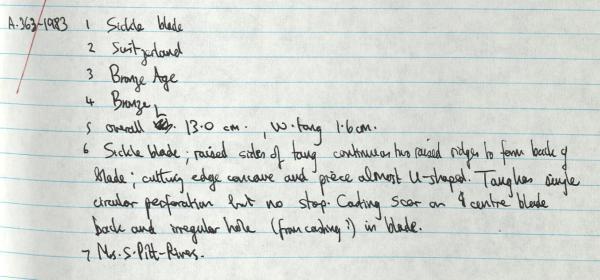 A.363-1983 1 Sickle blade
2 Switzerland
3 Bronze Age
4 Bronze
5 overall L. 13.0 cm., W. tang 1.6 cm.
6 Sickle blade; raised sides of tang continue as two raised ridges to form back of
blade; cutting edge concave and piece almost U-shaped. Tang has single
circular perforation but no stop. Casting scar on centre blade
back and irregular hole (from casting?) in blade.
7 Mrs. S. Pitt-Rivers.